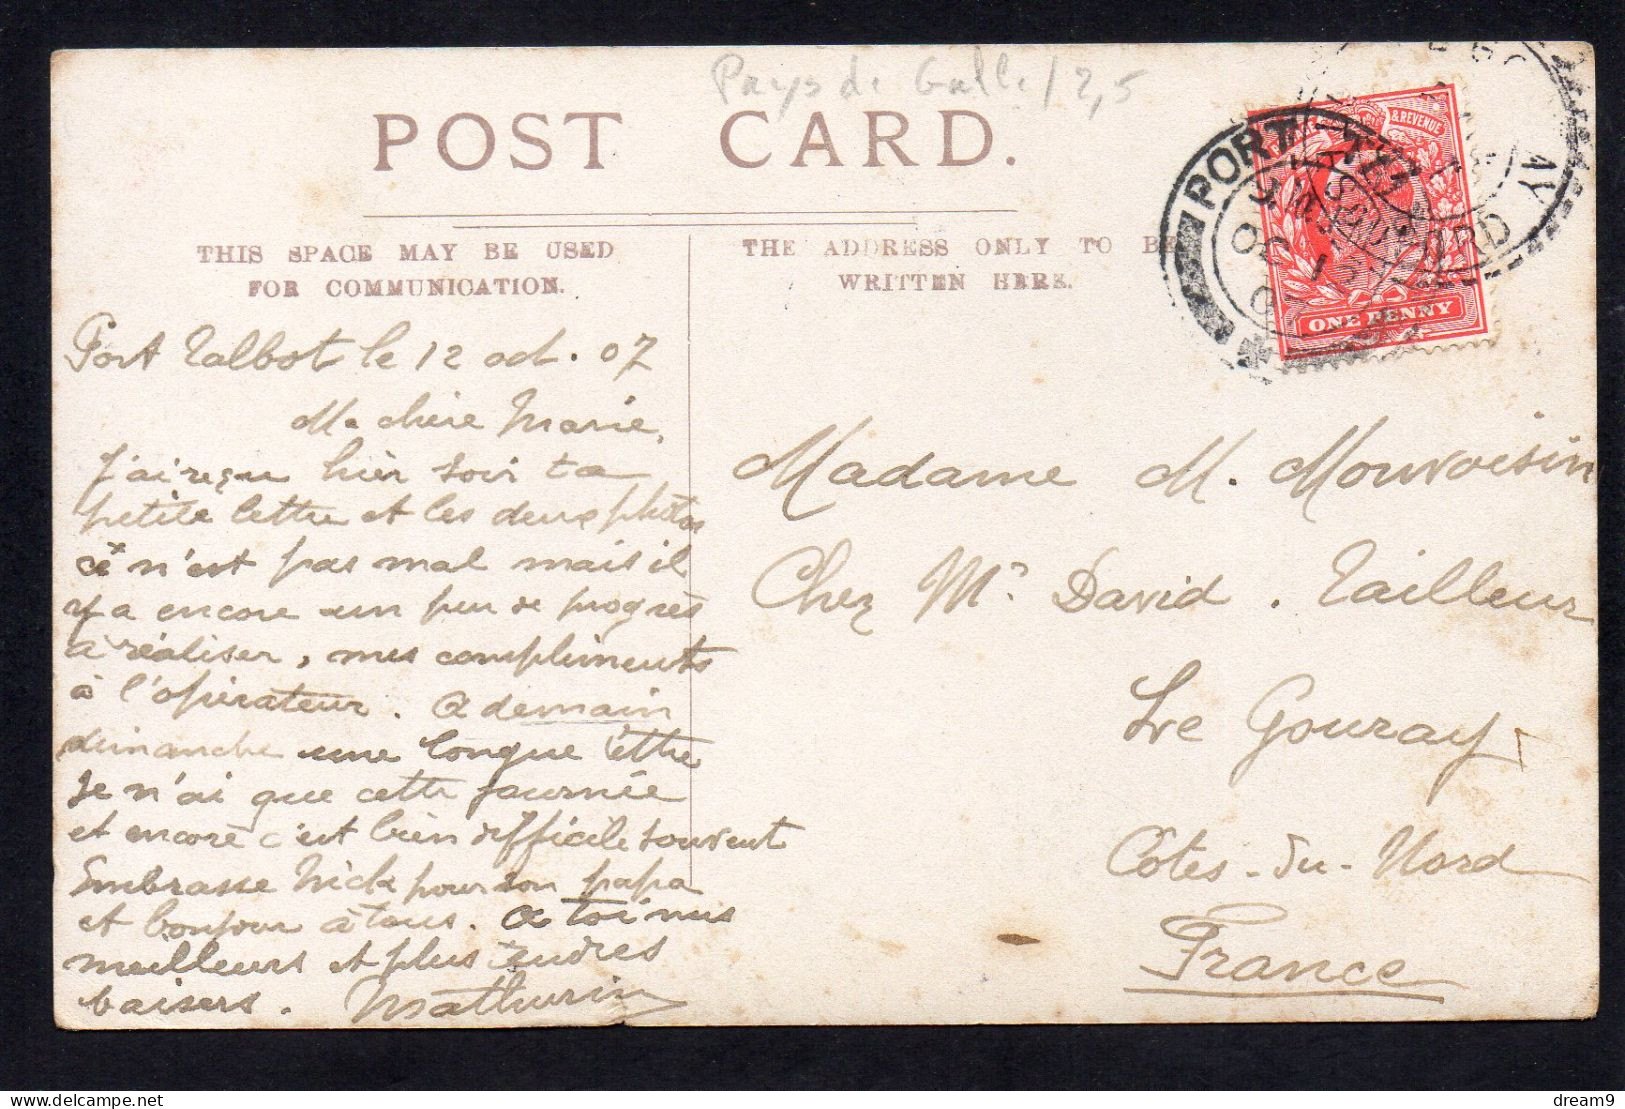 Pays de Galle / 2,5
POST CARD.
THIS SPACE MAY BE USED
FOR COMMUNICATION.
THE ADDRESS ONLY TO BE
WRITTEN HERE.
& REVENUE
ONE PENNY
PORT
Port Talbot le 12 oct. 07
Ma chère Marie,
J'ai reçu hier soir ta
petite lettre et les deux photos
ce n'est pas mal mais il
y a encore un peu de progrès
à réaliser, mes compliments
à l'opérateur. A demain
dimanche une longue lettre
Je n'ai que cette journée
et encore c'est bien difficile souvent
Embrasse Nick pour son papa
et bonjour à tous. A toi mes
meilleurs et plus tendres
baisers. Mathurin
Madame M. Mouvoisin
Chez Mr David. Tailleur
Le Gouray
Côtes-du-Nord
France
dream9